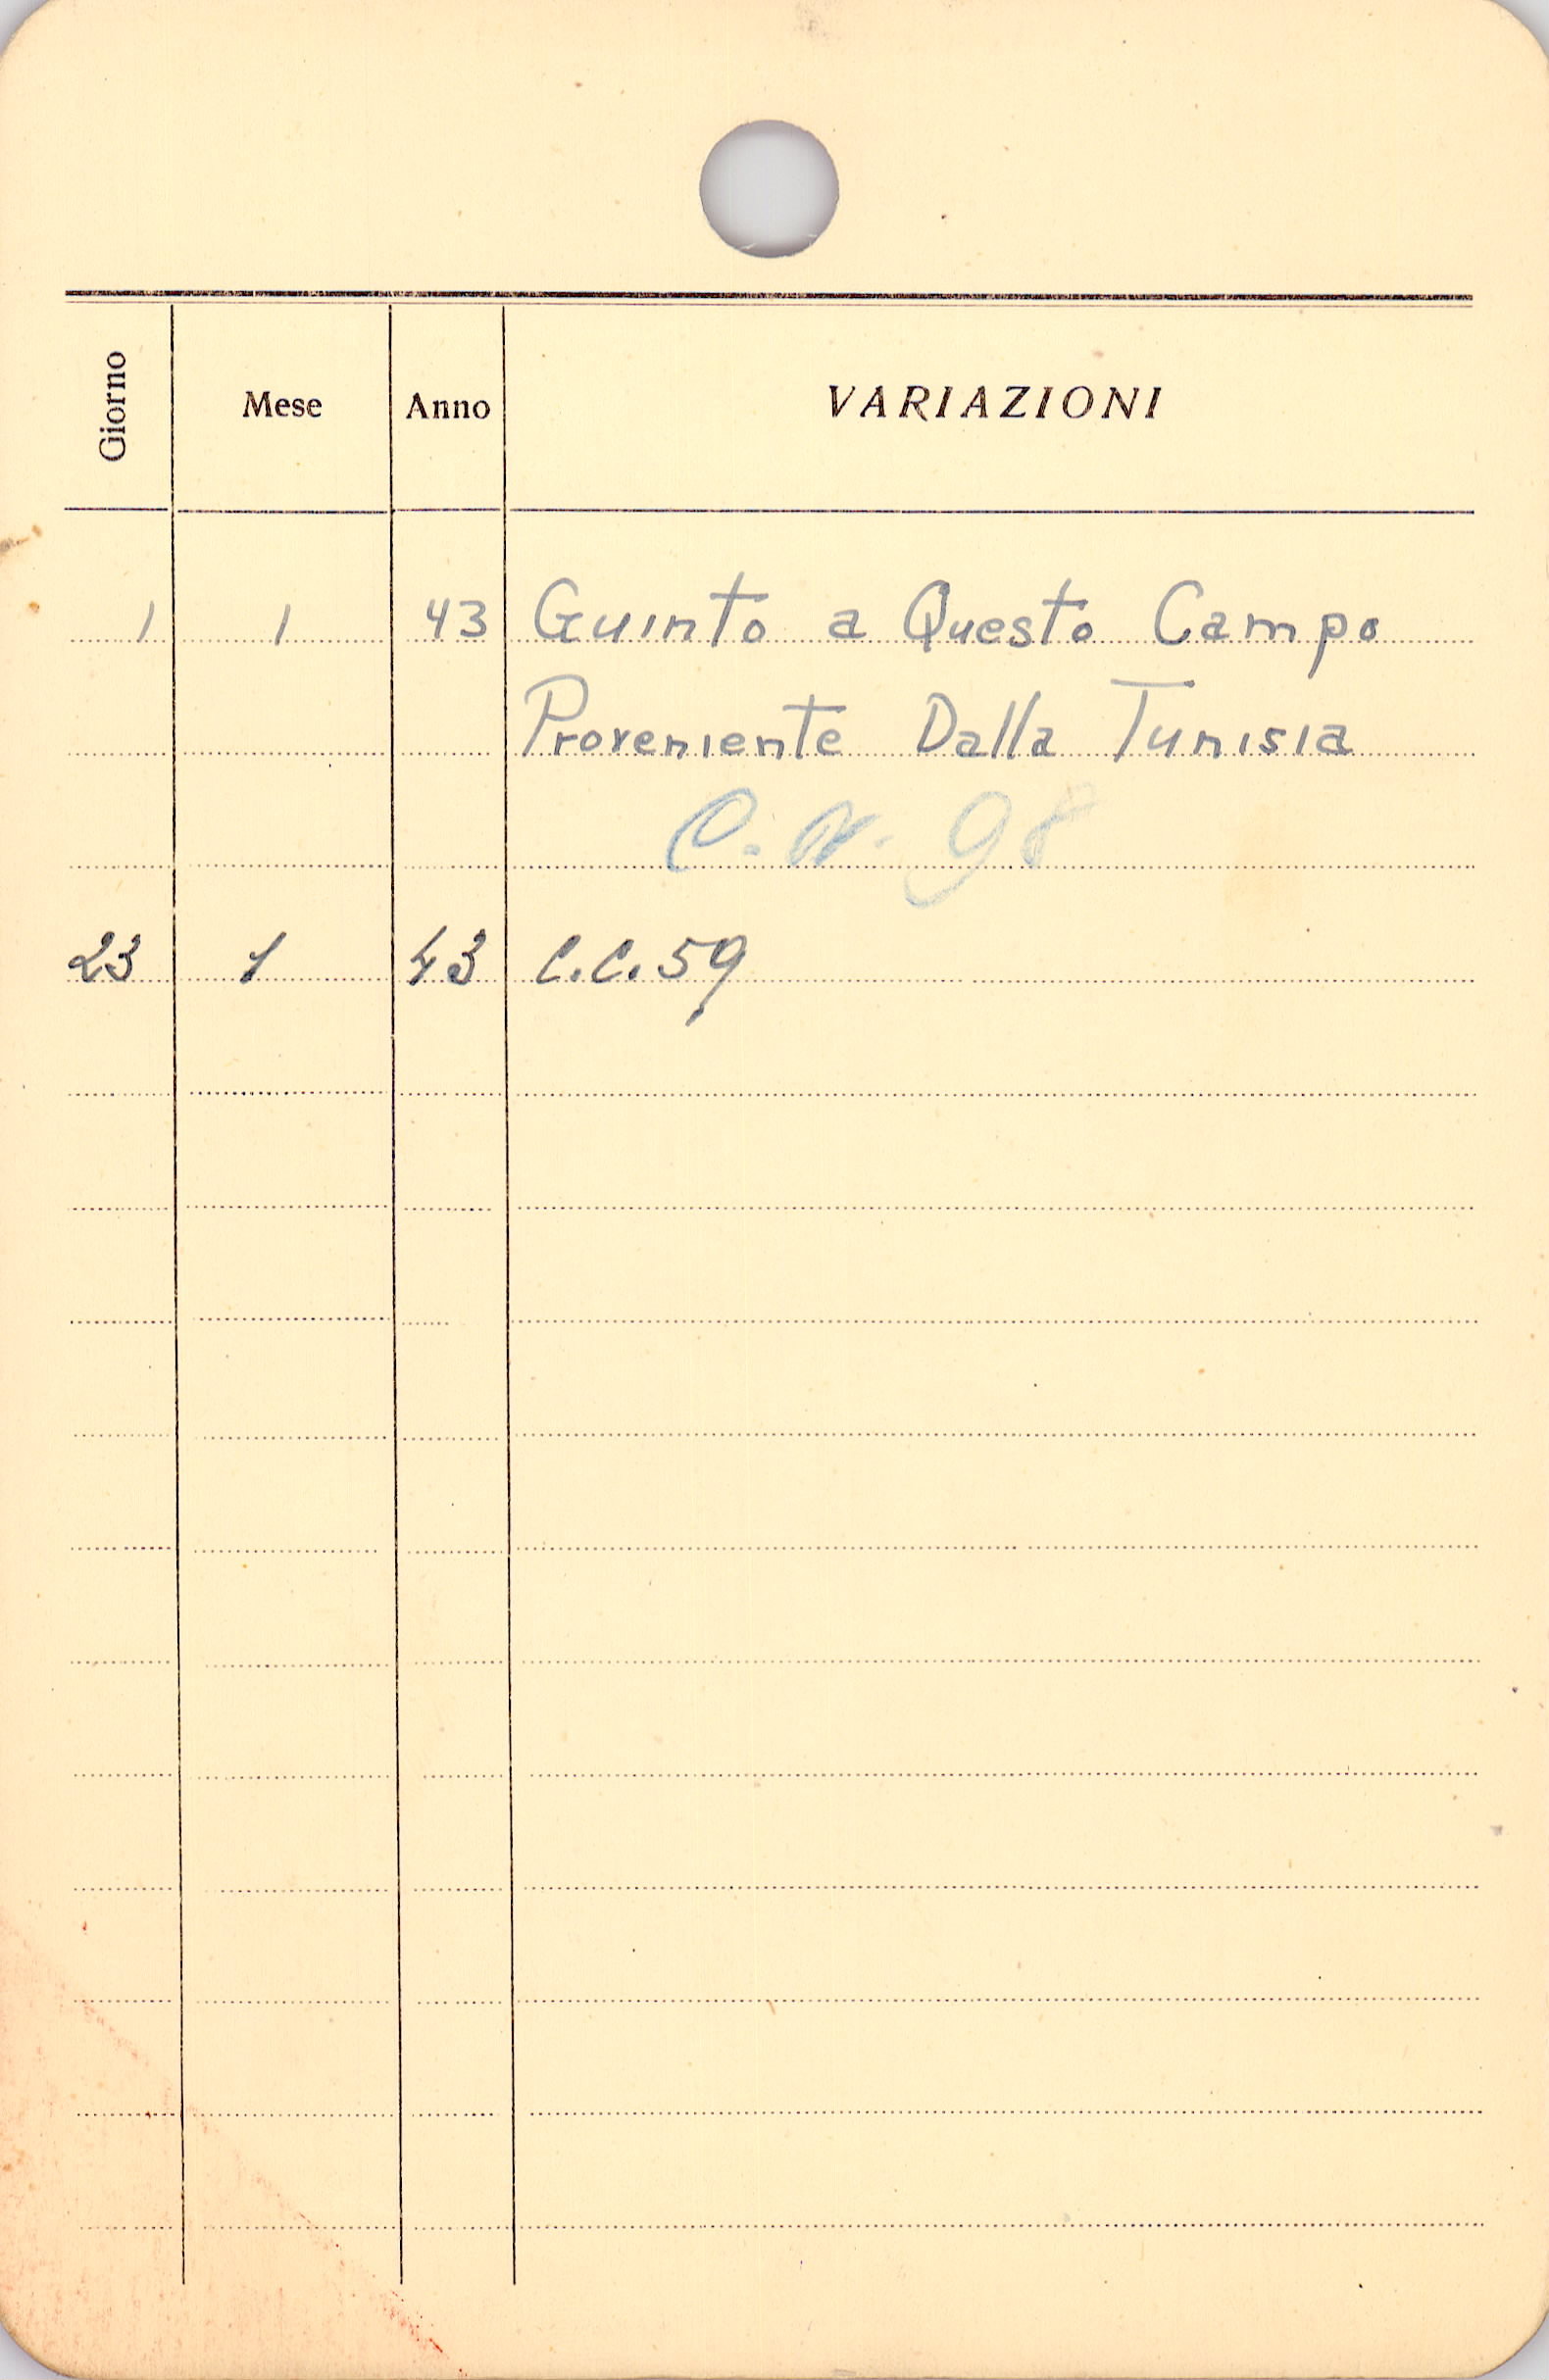 Giorno Mese Anno VARIAZIONI
1 1 43 Guinto a Questo Campo
Proveniente Dalla Tunisia
C. N. 98
23 1 43 C.C. 59